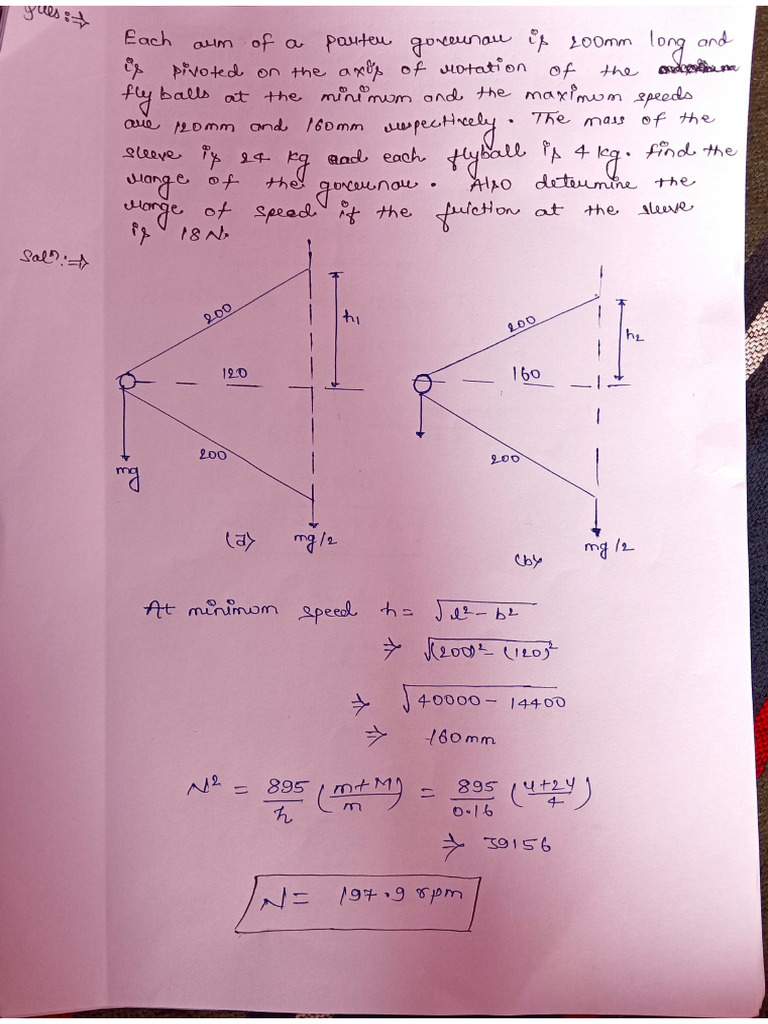 Ques:⇒
Each arm of a porter governor is 200mm long and
is pivoted on the axis of rotation of the
flyballs at the minimum and the maximum speeds
are 120mm and 160mm respectively. The mass of the
sleeve is 24 kg and each flyball is 4 kg. find the
range of the governor. Also determine the
range of speed if the friction at the sleeve
is 18N.
Solⁿ:⇒
200
h1
120
200
mg
mg/2
(a)
200
h2
160
200
mg/2
(b)
At minimum speed h = √l² - b²
⇒ √(200)² - (120)²
⇒ √40000 - 14400
⇒ 160mm
N² = 895/h (m+M/m) = 895/0.16 (4+24/4)
⇒ 39156
N = 197.9 rpm